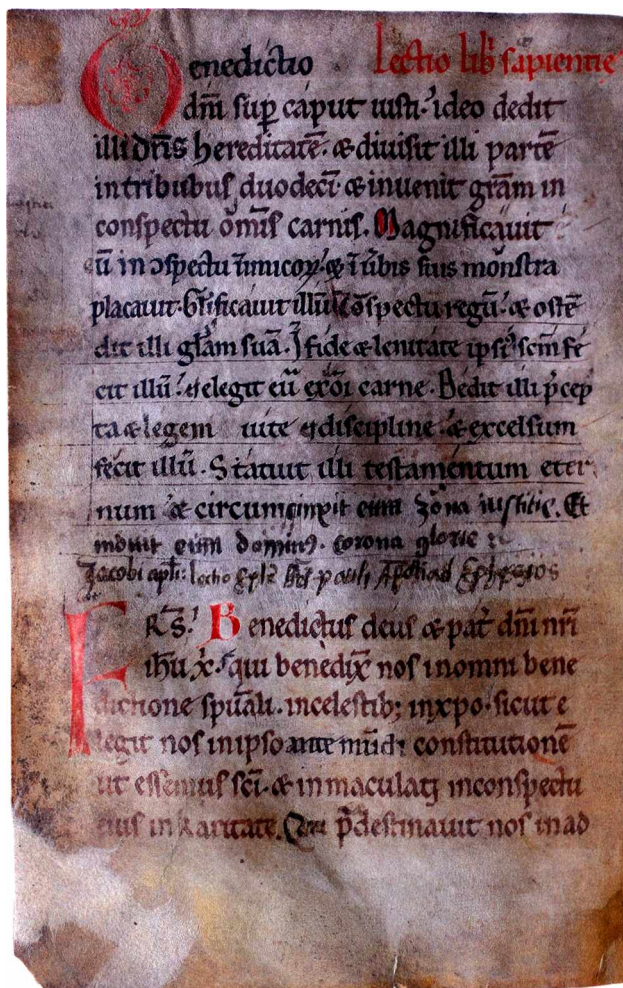 Benedictio Lectio lib̄ sapientie
dn̄i sup̄ caput iusti. ideo dedit
illi dn̄s hereditatē. & diuisit illi partē
in tribubus duodecī. & inuenit grām in
conspectu om̄is carnis. Magnificauit
eū in ɔspectu īnimicoꝝ. & ī ūbis suis monstra
placauit. Gl̄ificauit illū ī ɔspectu regū. & ostē
dit illi glām suā. I fide & lenitate ipsī scm̄ fe
cit illū. & elegit eū ex oī carne. Dedit illi p̄cep
ta & legem uite & discipline. & excelsum
fecit illū. Statuit illi testamentum eter
num & circumcinxit eum zona iustitie. Et
induit eum dominus corona glorie
Jacobi apl̄i: lectio epl̄e pauli Ap̄li ad Ephesios
FRS̄. Benedictus deus & pat̄ dn̄i nr̄i
ihū x̄. qui benedix̄ nos in omni bene
dictione spūali. in celestib; in xp̄o. sicut e
legit nos in ipso ante mūdi constitutionē
ut essemus sc̄i & inmaculati in conspectu
eius in karitate. Qui p̄destinauit nos in ad